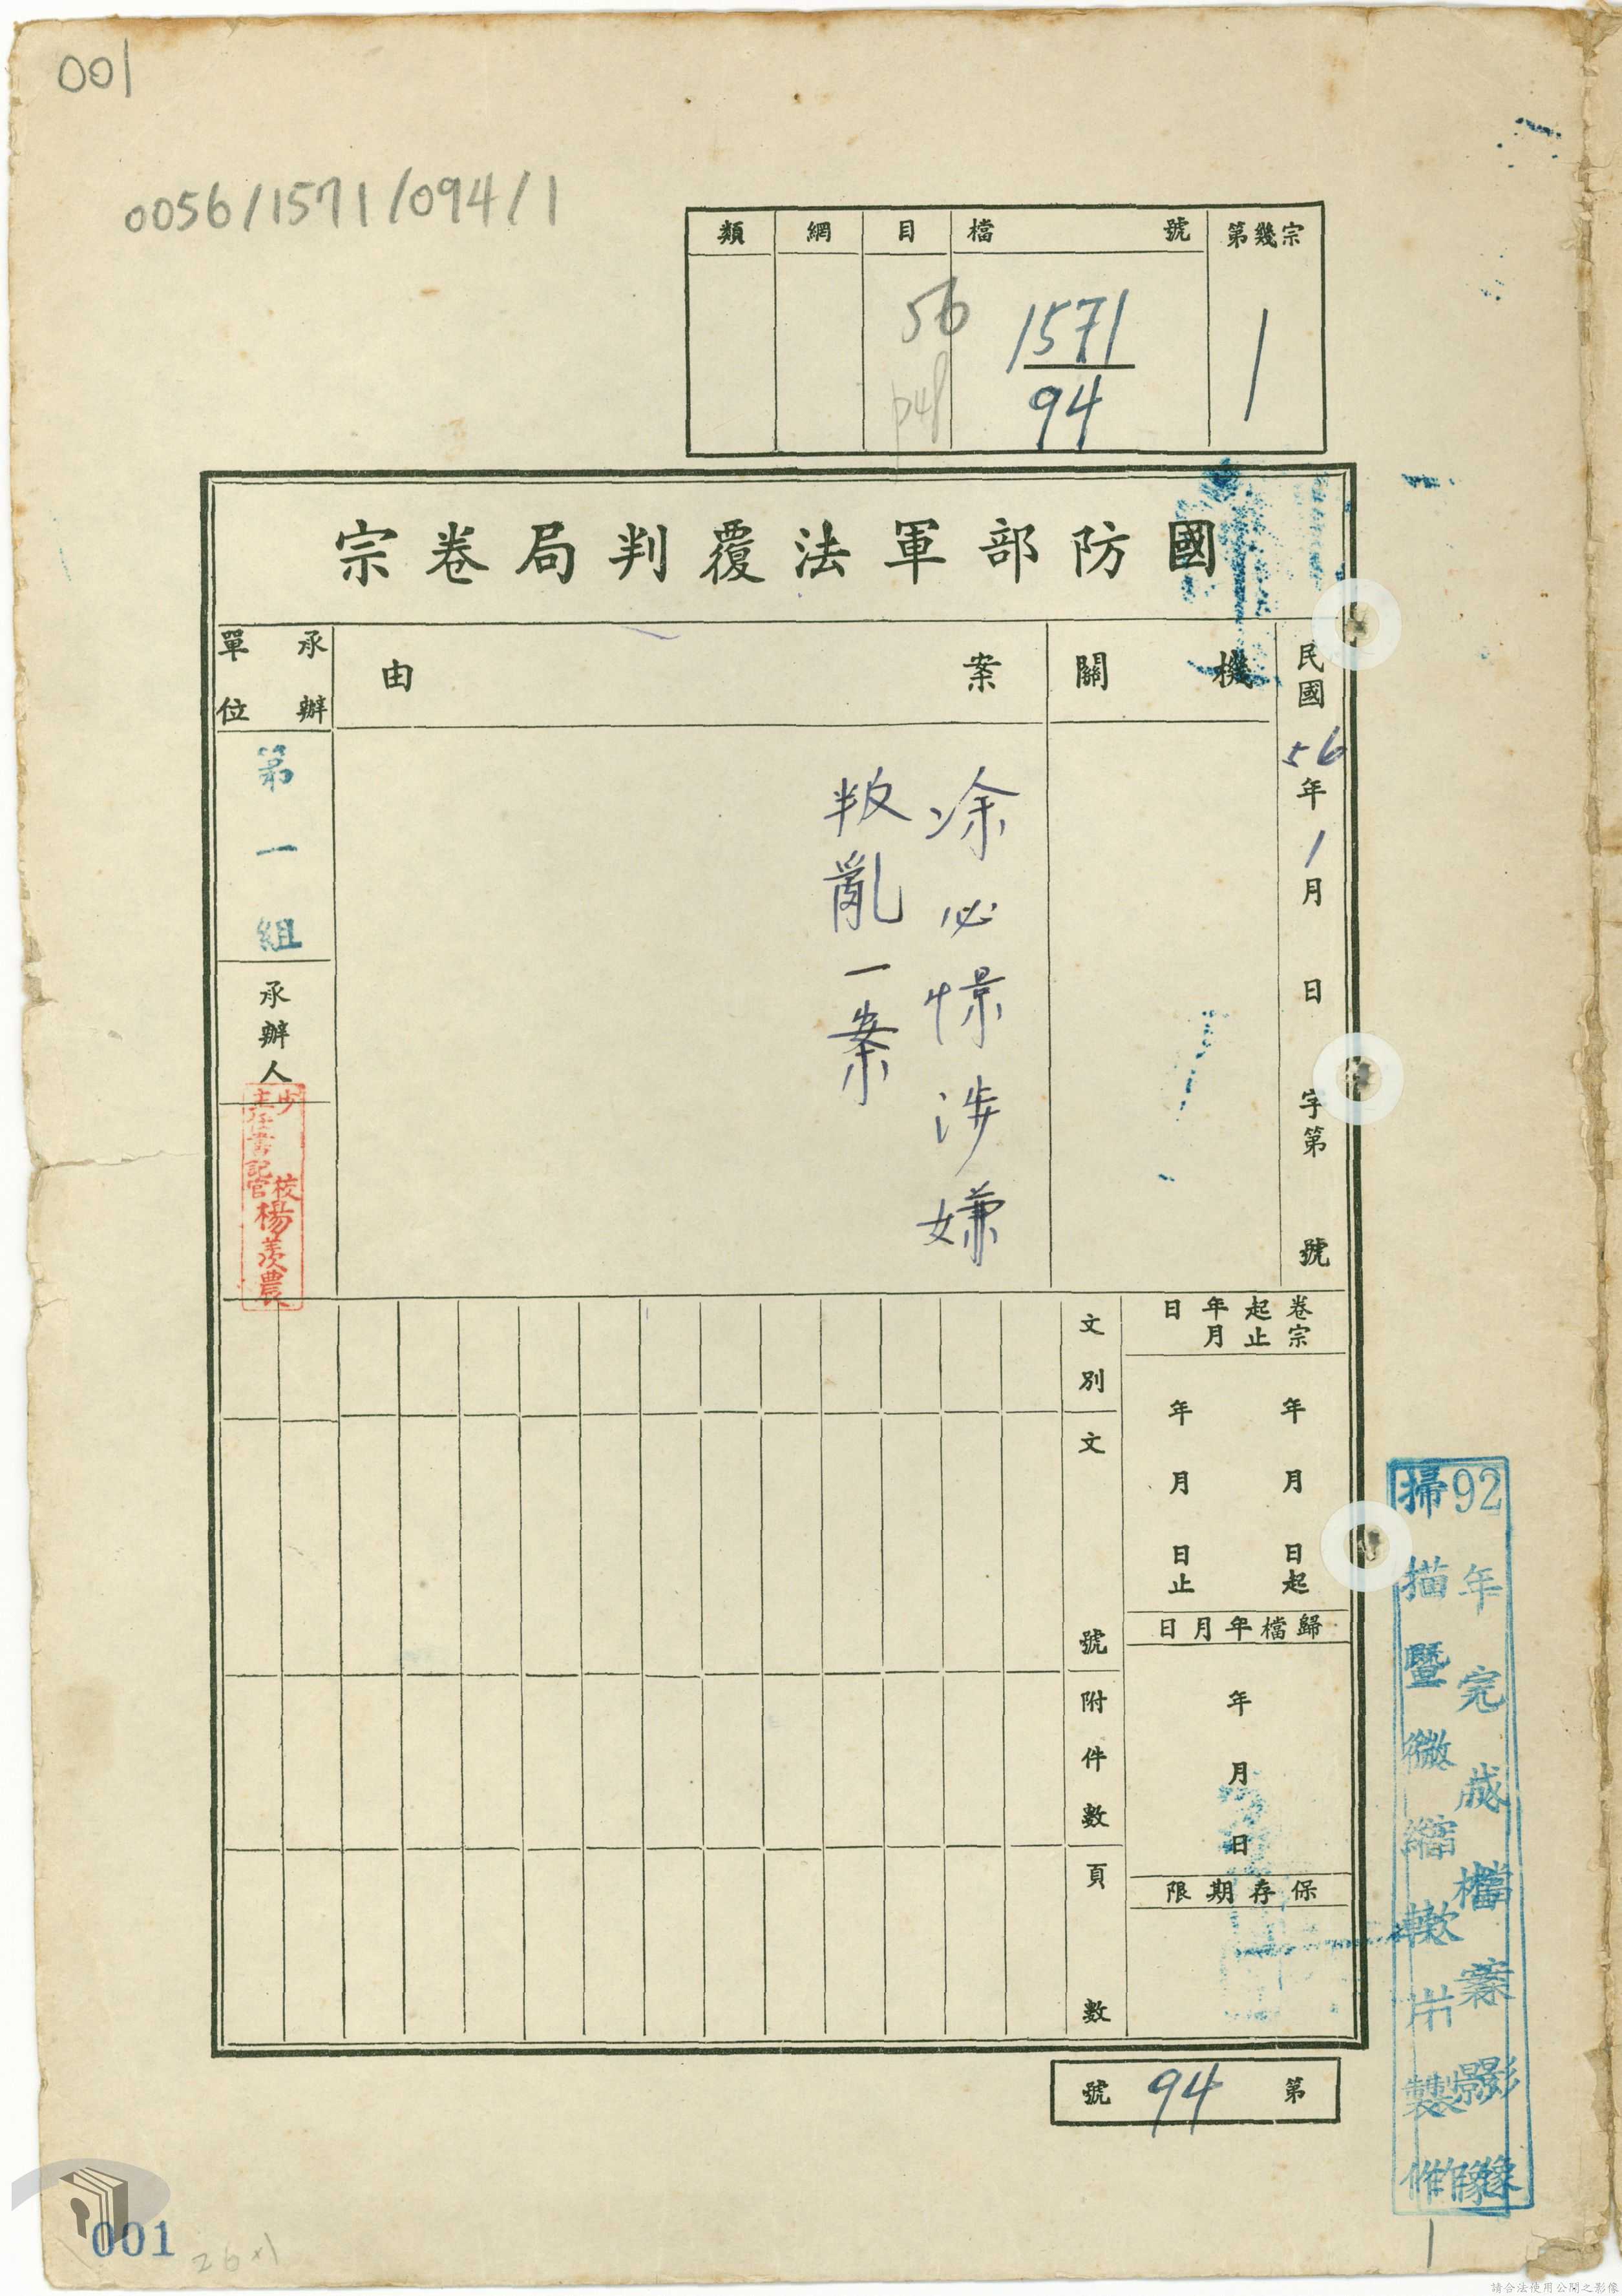 001
0056/1571/094/1
類 綱 目 檔號 第幾宗
56
1571
94
1
國防部軍法覆判局卷宗
民國56年1月 日 字第 號
機關
案由
涂必憬涉嫌
叛亂一案
承辦單位
第一組
承辦人
少校
主任書記官
楊羨農
卷宗起止年月日
年 月 日起
年 月 日止
歸檔年月日
年 月 日
保存期限
文別
文號
附件數
頁數
第 94 號
92年完成檔案影像
掃描暨微縮轉片製作
1
001
26×1
請合法使用公開之影像